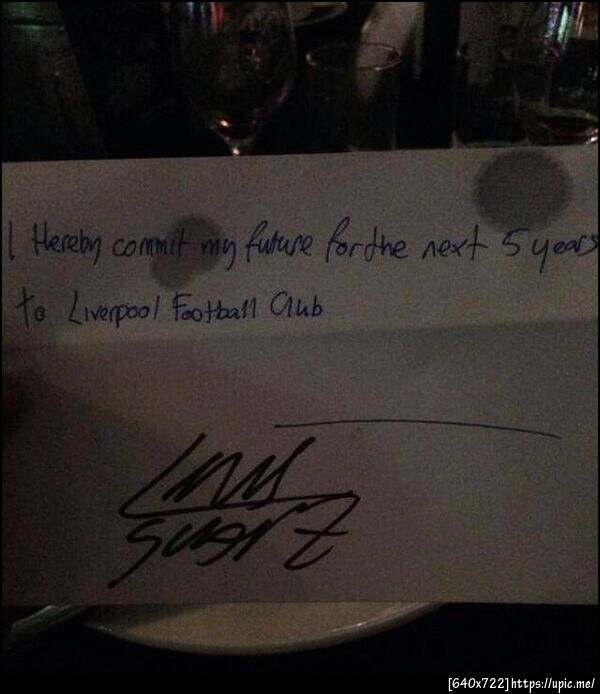 I Hereby commit my future for the next 5 years
to Liverpool Football Club
Luis
Suarez
[640x722]https://upic.me/